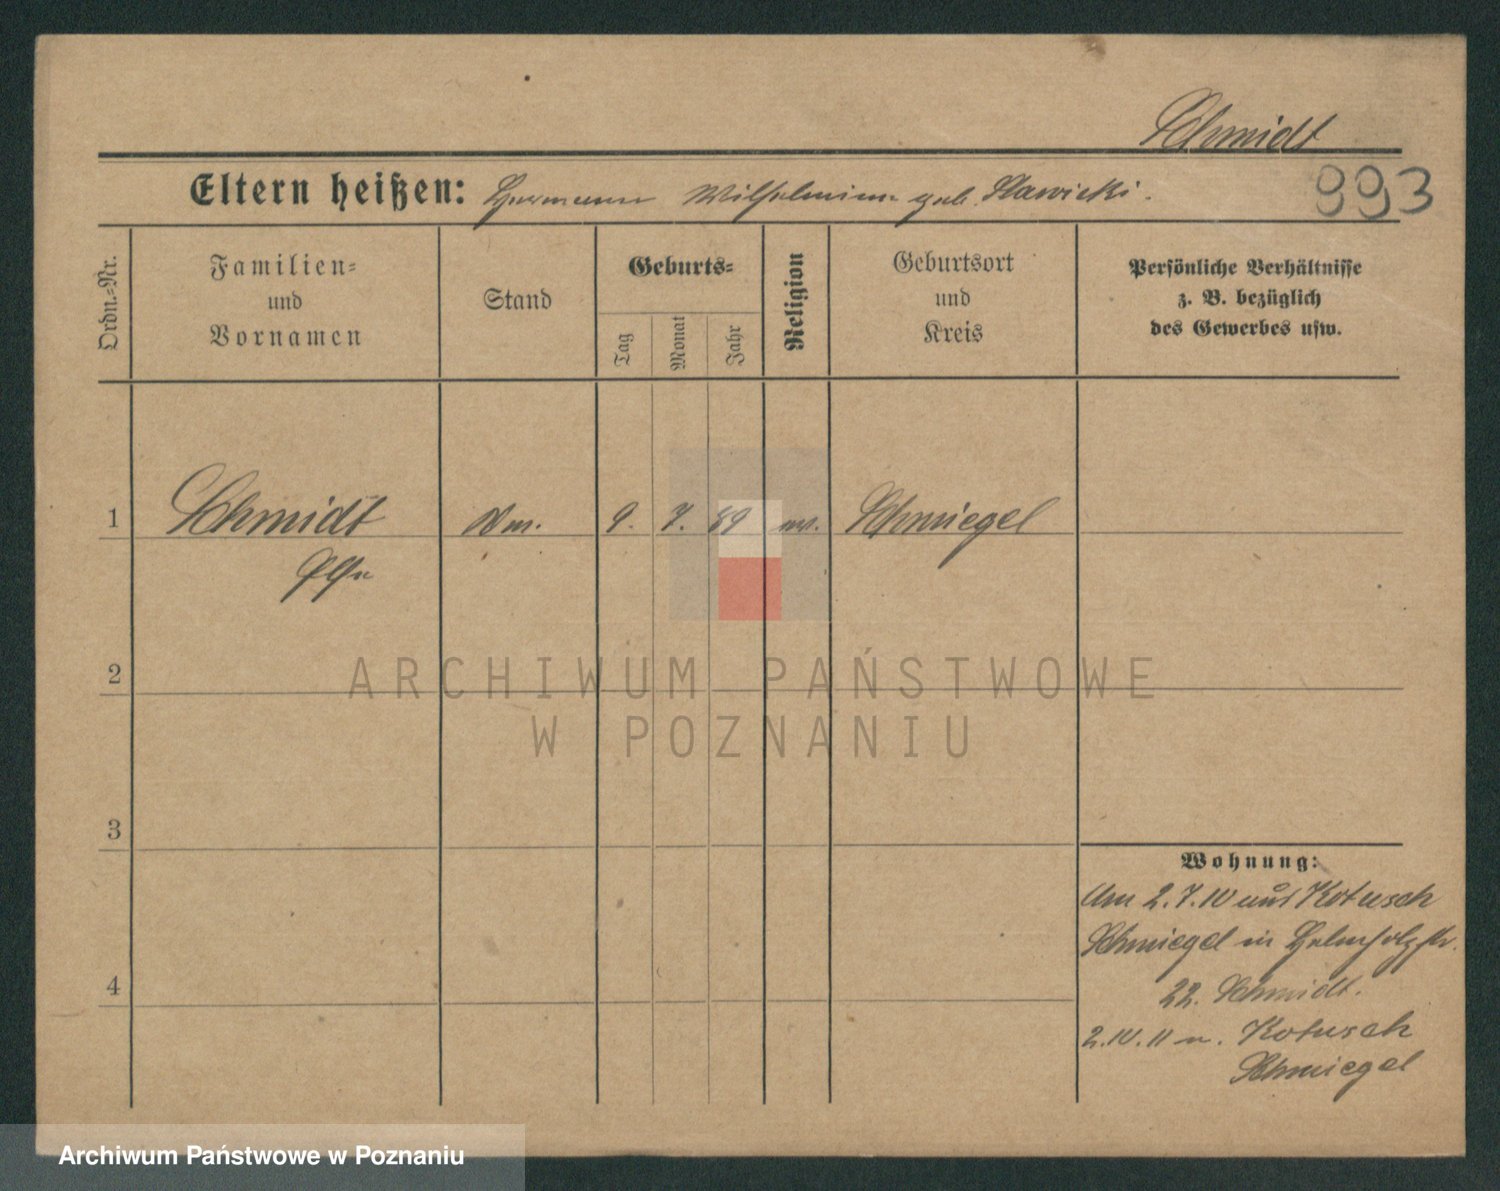 Schmidt
Eltern heißen: Hermann Wilhelmine geb. Slawicki.
993
Ordn.-Nr.
Familien-
und
Vornamen
Stand
Geburts-
Tag
Monat
Jahr
Religion
Geburtsort
und
Kreis
Persönliche Verhältnisse
z. B. bezüglich
des Gewerbes usw.
1 Schmidt 9. 7. 89 Schmiegel
2
3
4
Wohnung:
Am 2.7.10 aus Kotusch
Schmiegel in Helmholzstr.
22. Schmidt.
2.IV.11 n. Kotusch
Schmiegel
ARCHIWUM PAŃSTWOWE
W POZNANIU
Archiwum Państwowe w Poznaniu